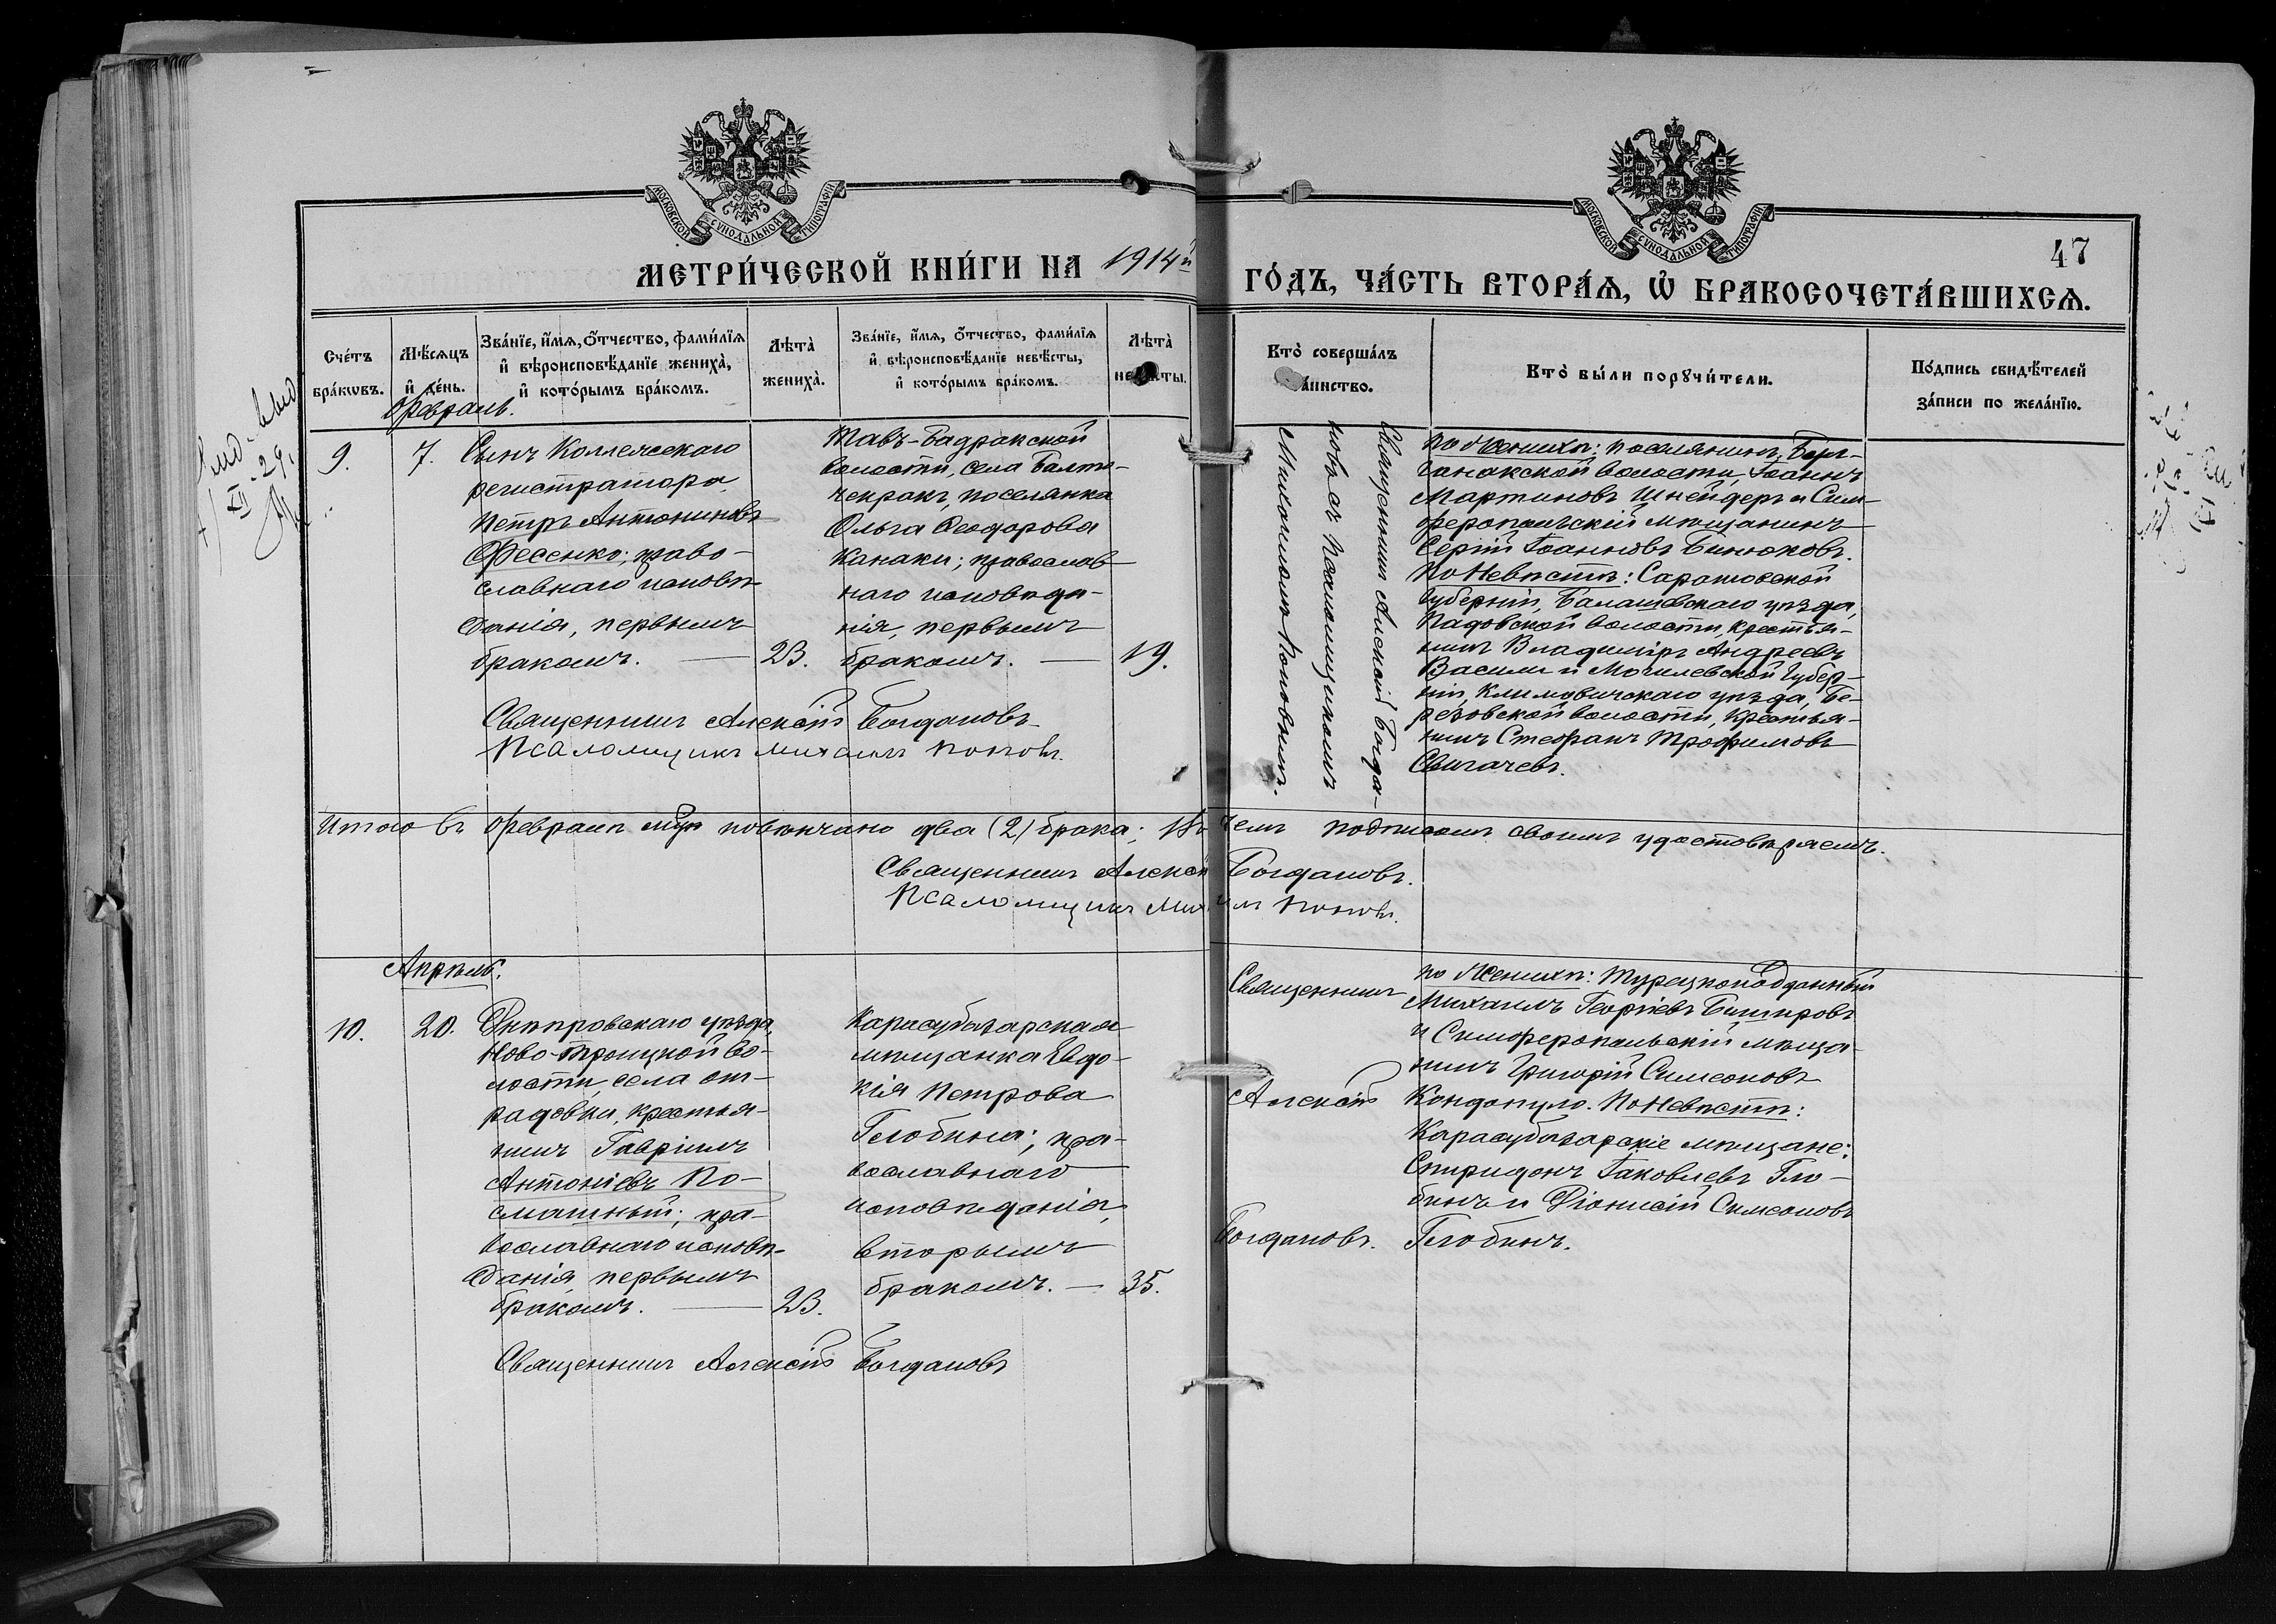 47
МЕТРИ́ЧЕСКОЙ КНИ́ГИ НА 1914й ГО́ДЪ, ЧА́СТЬ ВТОРА́Ѧ, Ѡ҆ БРАКОСОЧЕТА́ВШИХСѦ.
МОСКОВСКОЙ СѴНОДАЛЬНОЙ ТИПОГРАФІИ
МОСКОВСКОЙ СѴНОДАЛЬНОЙ ТИПОГРАФІИ
Сче́тъ
бра́кѡвъ.
Мѣ́сѧцъ
и҆ де́нь.
Зва́нїе, и҆́мѧ, ѻ҆́тчество, фами́лїѧ
и҆ вѣроисповѣ́данїе жениха̀,
и҆ кото́рымъ бра́комъ.
Лѣта̀
жениха̀.
Зва́нїе, и҆́мѧ, ѻ҆́тчество, фами́лїѧ
и҆ вѣроисповѣ́данїе невѣ́сты,
и҆ кото́рымъ бра́комъ.
Лѣта̀
невѣ́сты.
Кто̀ соверша́лъ
таинство.
Кто̀ бы́ли порꙋчи́тели.
По́дпись свидѣ́телей
за́писи по жела́нїю.
Февраль.
9.
7.
Сынъ Коллежскаго
регистратора
Петръ Антониновъ
Фесенко; право-
славнаго исповѣ-
данія, первымъ
бракомъ. —
23.
Тавъ-Бадракской
волости, села Балта-
чекракъ, поселянка
Ольга Ѳеодорова
Канаки; православ-
наго исповѣда-
нія, первымъ
бракомъ. —
19.
Священникъ Алексій Богда-
новъ съ псаломщикомъ
Михаиломъ Поповымъ.
По Женихѣ: поселянинъ, Бул-
ганакской волости, Іоаннъ
Мартиновъ Шнейдеръ и Сим-
феропольскій мѣщанинъ
Сергій Іоанновъ Бинюковъ.
По Невѣстѣ: Саратовской
губерніи, Балашовскаго уѣзда,
Падовской волости, крестья-
нинъ Владиміръ Андреевъ
и Могилевской губер-
ніи, Климовичскаго уѣзда, Бе-
резовской волости, крестья-
нинъ Стефанъ Трофимовъ
Свигачевъ.
Священникъ Алексій Богдановъ
Псаломщикъ Михаилъ Поповъ.
Итого въ Февралѣ м-цѣ повѣнчано два (2) брака; въ чемъ подписомъ своимъ удостовѣряемъ.
Священникъ Алексій Богдановъ.
Псаломщикъ Михаилъ Поповъ.
Апрѣль.
10.
20.
Днѣпровскаго уѣзда,
Ново-Троицкой во-
лости, села От-
радовки, крестья-
нинъ Гавріилъ
Антоніевъ По-
смашный; пра-
вославнаго исповѣ-
данія, первымъ
бракомъ. —
23.
Карасубазарская
мѣщанка Евдо-
кія Петрова
Глобина; пра-
вославнаго
исповѣданія,
вторымъ
бракомъ. —
35.
Священникъ
Алексій
Богдановъ.
по Женихѣ: Турецкоподданный
Михаилъ Георгіевъ Бишировъ
и Симферопольскій мѣща-
нинъ Григорій Симеоновъ
Кондопуло. По Невѣстѣ:
Карасубазарскіе мѣщане:
Спиридонъ Іаковлевъ Гло-
бинъ и Діонисій Симеоновъ
Глобинъ.
Священникъ Алексій Богдановъ